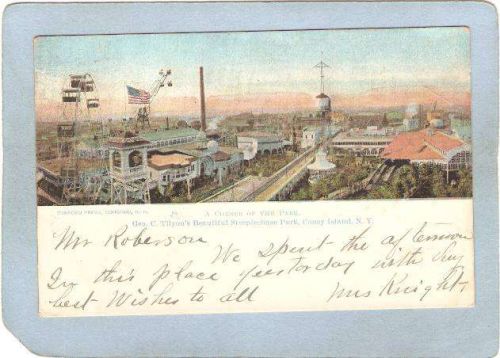 A CORNER OF THE PARK.
Geo. C. Tilyou's Beautiful Steeplechase Park, Coney Island, N. Y.
Mr Roberson
We spent the afternoon
In this place yesterday with
best Wishes to all
Mrs Knight